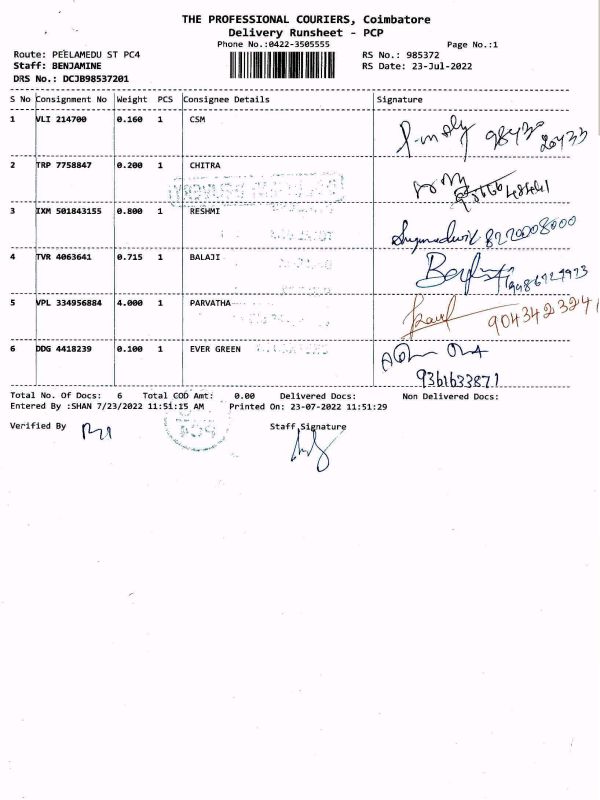 THE PROFESSIONAL COURIERS, Coimbatore
Delivery Runsheet - PCP
Phone No.:0422-3505555 Page No.:1
Route: PEELAMEDU ST PC4 RS No.: 985372
Staff: BENJAMINE RS Date: 23-Jul-2022
DRS No.: DCJB98537201
S No Consignment No Weight PCS Consignee Details Signature
1 VLI 214700 0.160 1 CSM
2 TRP 7758847 0.200 1 CHITRA
3 IXM 501843155 0.800 1 RESHMI 8220008000
4 TVR 4063641 0.715 1 BALAJI
5 VPL 334956884 4.000 1 PARVATHA 9043423241
6 DDG 4418239 0.100 1 EVER GREEN
9361633871
Total No. Of Docs: 6 Total COD Amt: 0.00 Delivered Docs: Non Delivered Docs:
Entered By :SHAN 7/23/2022 11:51:15 AM Printed On: 23-07-2022 11:51:29
Verified By Staff Signature